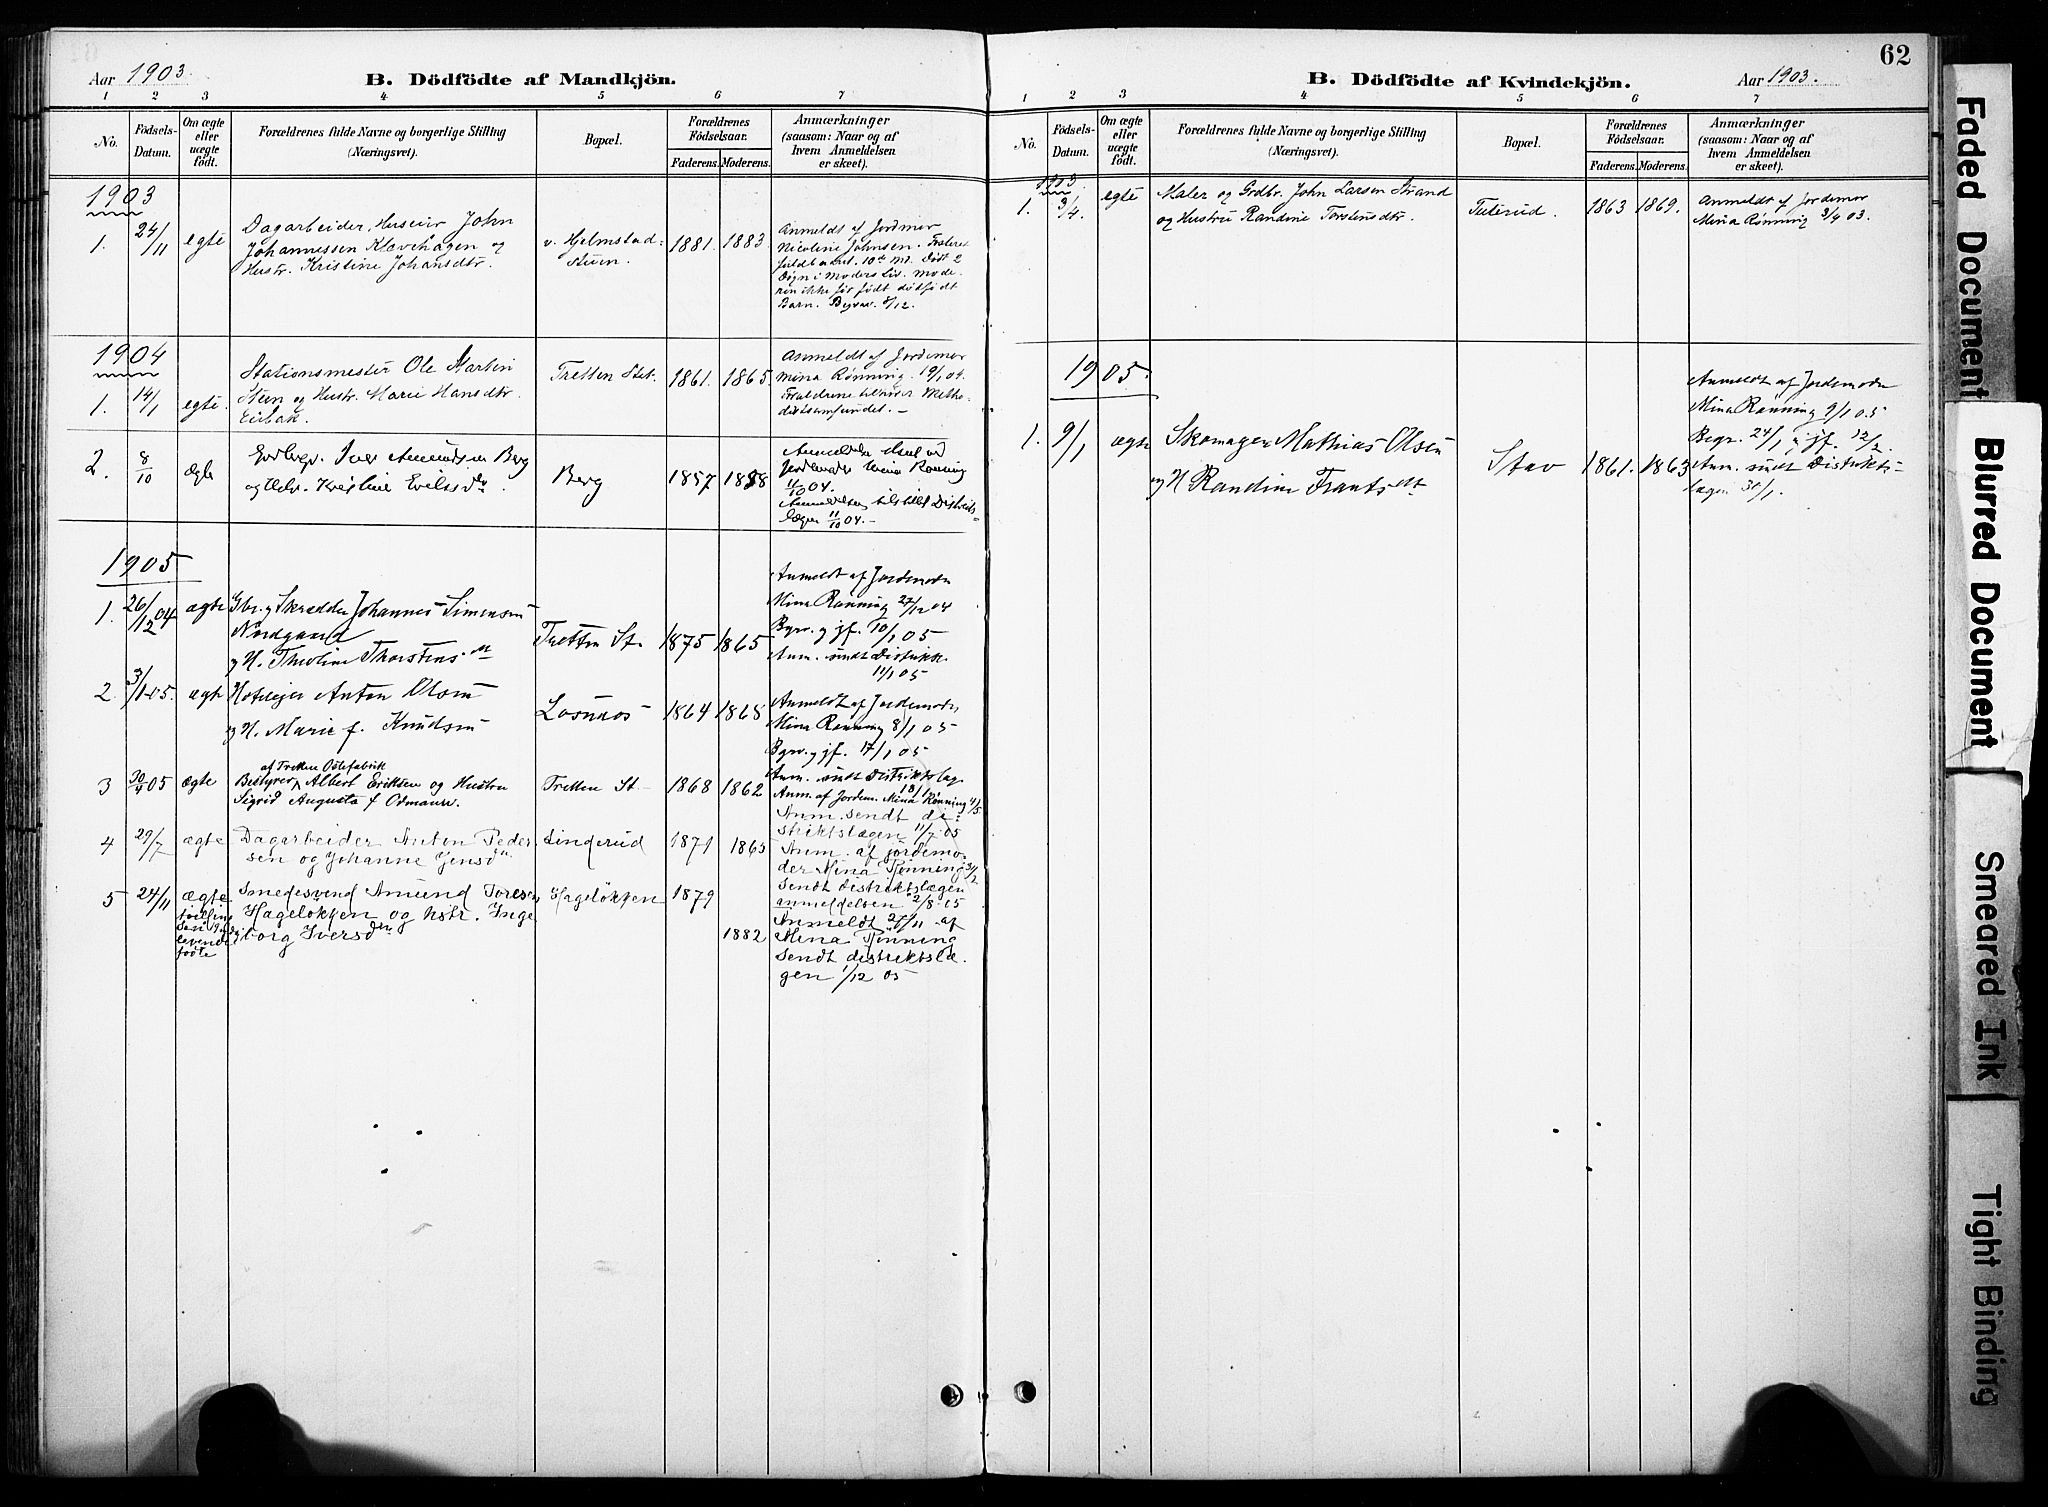 Aar 1903.
B. Dödfödte af Mandkjön.
1 2 3 4 5 6 7
No.
Födsels-
Datum.
Om ægte
eller
uægte
födt.
Forældrenes fulde Navne og borgerlige Stilling
(Næringsvei).
Bopæl.
Forældrenes
Födselsaar.
Faderens. Moderens.
Anmærkninger
(saasom: Naar og af
hvem Anmeldelsen
er skeet).
1903
1. 24/11 egte
Dagarbeider, Huseier John
Johannessen Klavehagen og
Hustr. Kristine Johansdtr.
v. Hjelmstad-
stuen.
1881. 1883.
Anmeldt af Jordmor
Nicoline Johnsen. Fosteret
fuldbaaret. 10de Md. Dødt 2
Døgn i Moders Liv. Mode-
ren ikke før født dødfødt
Barn. Begrav. 8/12.
1904
1. 14/1 egte.
Stationsmester Ole Martin
Steen og Hustr. Marie Hansdtr.
Tretten Stat.
1861. 1865.
Anmeldt af Jordemor
Mina Rønning. 19/1 04.
Forældrene tilhører Metho-
distsamfundet. -
2. 8/10 ægte
Iver Amundsen Berg
Berg
1857 1858
Mina Rønning
11/10 04.
Anmeldelsen tilstillet Distrikts-
lægen 11/10 04. -
1905
1. 26/12 04 ægte
Gbr. og Skrædder Johannes Simensen
Nordgaard
og H. Theoline Thorstensdtr
Tretten St.
1875 1865
Anmeldt af Jordemoder
Mina Rønning 27/12 04
Begr. og jf. 10/1 05
Anm. sendt Distrikts.
11/1 05
2 3/1 05. ægte
Hotelejer Anton Olsen
og H. Marie f. Knudsen
Losnaos
1864 1865
Anmeldt af Jordemoder
Mina Rønning 8/1 05
Begr. og jf. 17/1 05
Anm. sendt Distriktslæg.
18/1
3 30/4 05 ægte
af Tretten Ostefabrik
Bestyrer Albert Eriksen og Hustru
Sigrid Augusta f Odmanse.
Tretten St
1868 1862
Anm. af Jordem. Mina Rønning 4/5
Anm. sendt di-
striktslægen 11/7 05
4 29/7 ægte
Dagarbeider Anton Peder-
sen og Johanne Jensdtr
Linderud
1871 1865
Anm. af jordemo-
der Mina Rønning 31/7
Sendt distriktslægen
anmeldelsen 2/8 05
5 24/11 ægte
tvilling
levende
fødte
Smedesvend Amund Toresen
Hageløkken og hstr. Inge
borg Iversdtr
Hageløkken
1879
1882
Anmeldt 25/11 af
Mina Rønning
Sendt distriktslæ-
gen 1/12 05
62
B. Dödfödte af Kvindekjön.
Aar 1903.
1 2 3 4 5 6 7
No.
Födsels-
Datum.
Om ægte
eller
uægte
födt.
Forældrenes fulde Navne og borgerlige Stilling
(Næringsvei).
Bopæl.
Forældrenes
Födselsaar.
Faderens. Moderens.
Anmærkninger
(saasom: Naar og af
hvem Anmeldelsen
er skeet).
1903
1. 3/4. egte
Maler og Grdbr. John Larsen Strand
og Hustru Randine Torstensdtr.
Tuterud.
1863 1869.
Anmeldt af Jordemor
Mina Rønning 3/4 03.
1905.
1. 9/1 ægte
Skomager Mathias Olsen
og H Randine Frantsdtr
Stav
1861. 1863
Anmeldt af Jordemoder
Mina Rønning 9/1 05
Begr. 24/1, jf. 12/2
Anm. sendt Distrikts-
lægen 31/1.
Faded Document
Blurred Document
Smeared Ink
Tight Binding